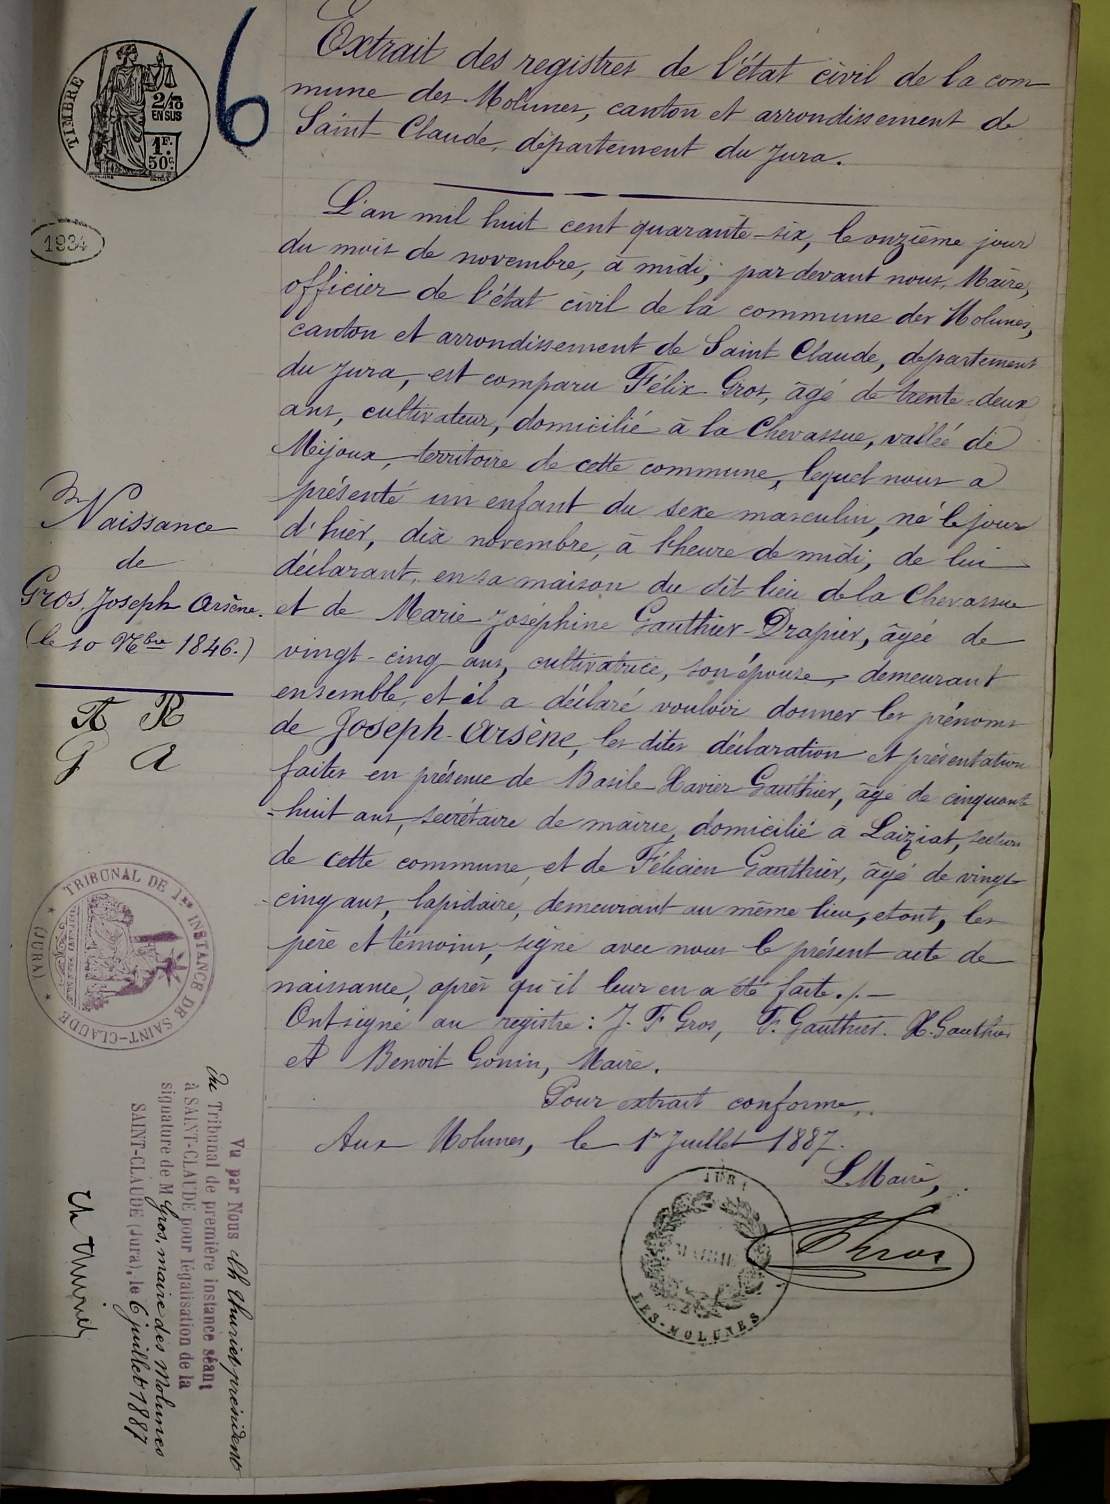 TIMBRE
2/10
EN SUS
1F.
50c.
6
1934
Extrait des registres de l'état civil de la com
mune des Molunes, canton et arrondissement de
Saint Claude, département du Jura.
L'an mil huit cent quarante-six, le onzième jour
du mois de novembre, à midi, par devant nous, Maire,
officier de l'état civil de la commune des Molunes,
canton et arrondissement de Saint Claude, département
du Jura, est comparu Félix Gros, âgé de trente-deux
ans, cultivateur, domicilié à la Chevassue, vallée de
Mijoux, territoire de cette commune, lequel nous a
présenté un enfant du sexe masculin, né le jour
d'hier, dix novembre, à l'heure de midi, de lui
déclarant, en sa maison du dit lieu de la Chevassue
et de Marie Joséphine Gauthier-Drapier, âgée de
vingt-cinq ans, cultivatrice, son épouse, demeurant
ensemble, et il a déclaré vouloir donner les prénoms
de Joseph-Arsène, les dites déclaration et présentation
faites en présence de Basile Xavier Gauthier, âgé de cinquante
-huit ans, secrétaire de mairie, domicilié à Laiziat, section
de cette commune, et de Félicien Gauthier, âgé de vingt
-cinq ans, lapidaire, demeurant au même lieu, et ont, les
père et témoins, signé avec nous le présent acte de
naissance, après qu'il leur en a été faite./.—
Ont signé au registre : J. F Gros, F. Gauthier. X. Gauthier
et Benoit Gonin, Maire.
Pour extrait conforme,
Aux Molunes, le 1er Juillet 1887.
Le Maire,
Gros
JURA
MAIRIE
LES-MOLUNES
Naissance
de
Gros, Joseph Arsène.
(le 10 9bre 1846.)
R
G A
TRIBUNAL DE 1RE INSTANCE DE SAINT-CLAUDE
(JURA)
Vu par Nous Ch Thuriet président
du Tribunal de première instance séant
à SAINT-CLAUDE pour légalisation de la
signature de M Gros, maire des Molunes
SAINT-CLAUDE (Jura), le 6 juillet 1887
Ch Thuriet